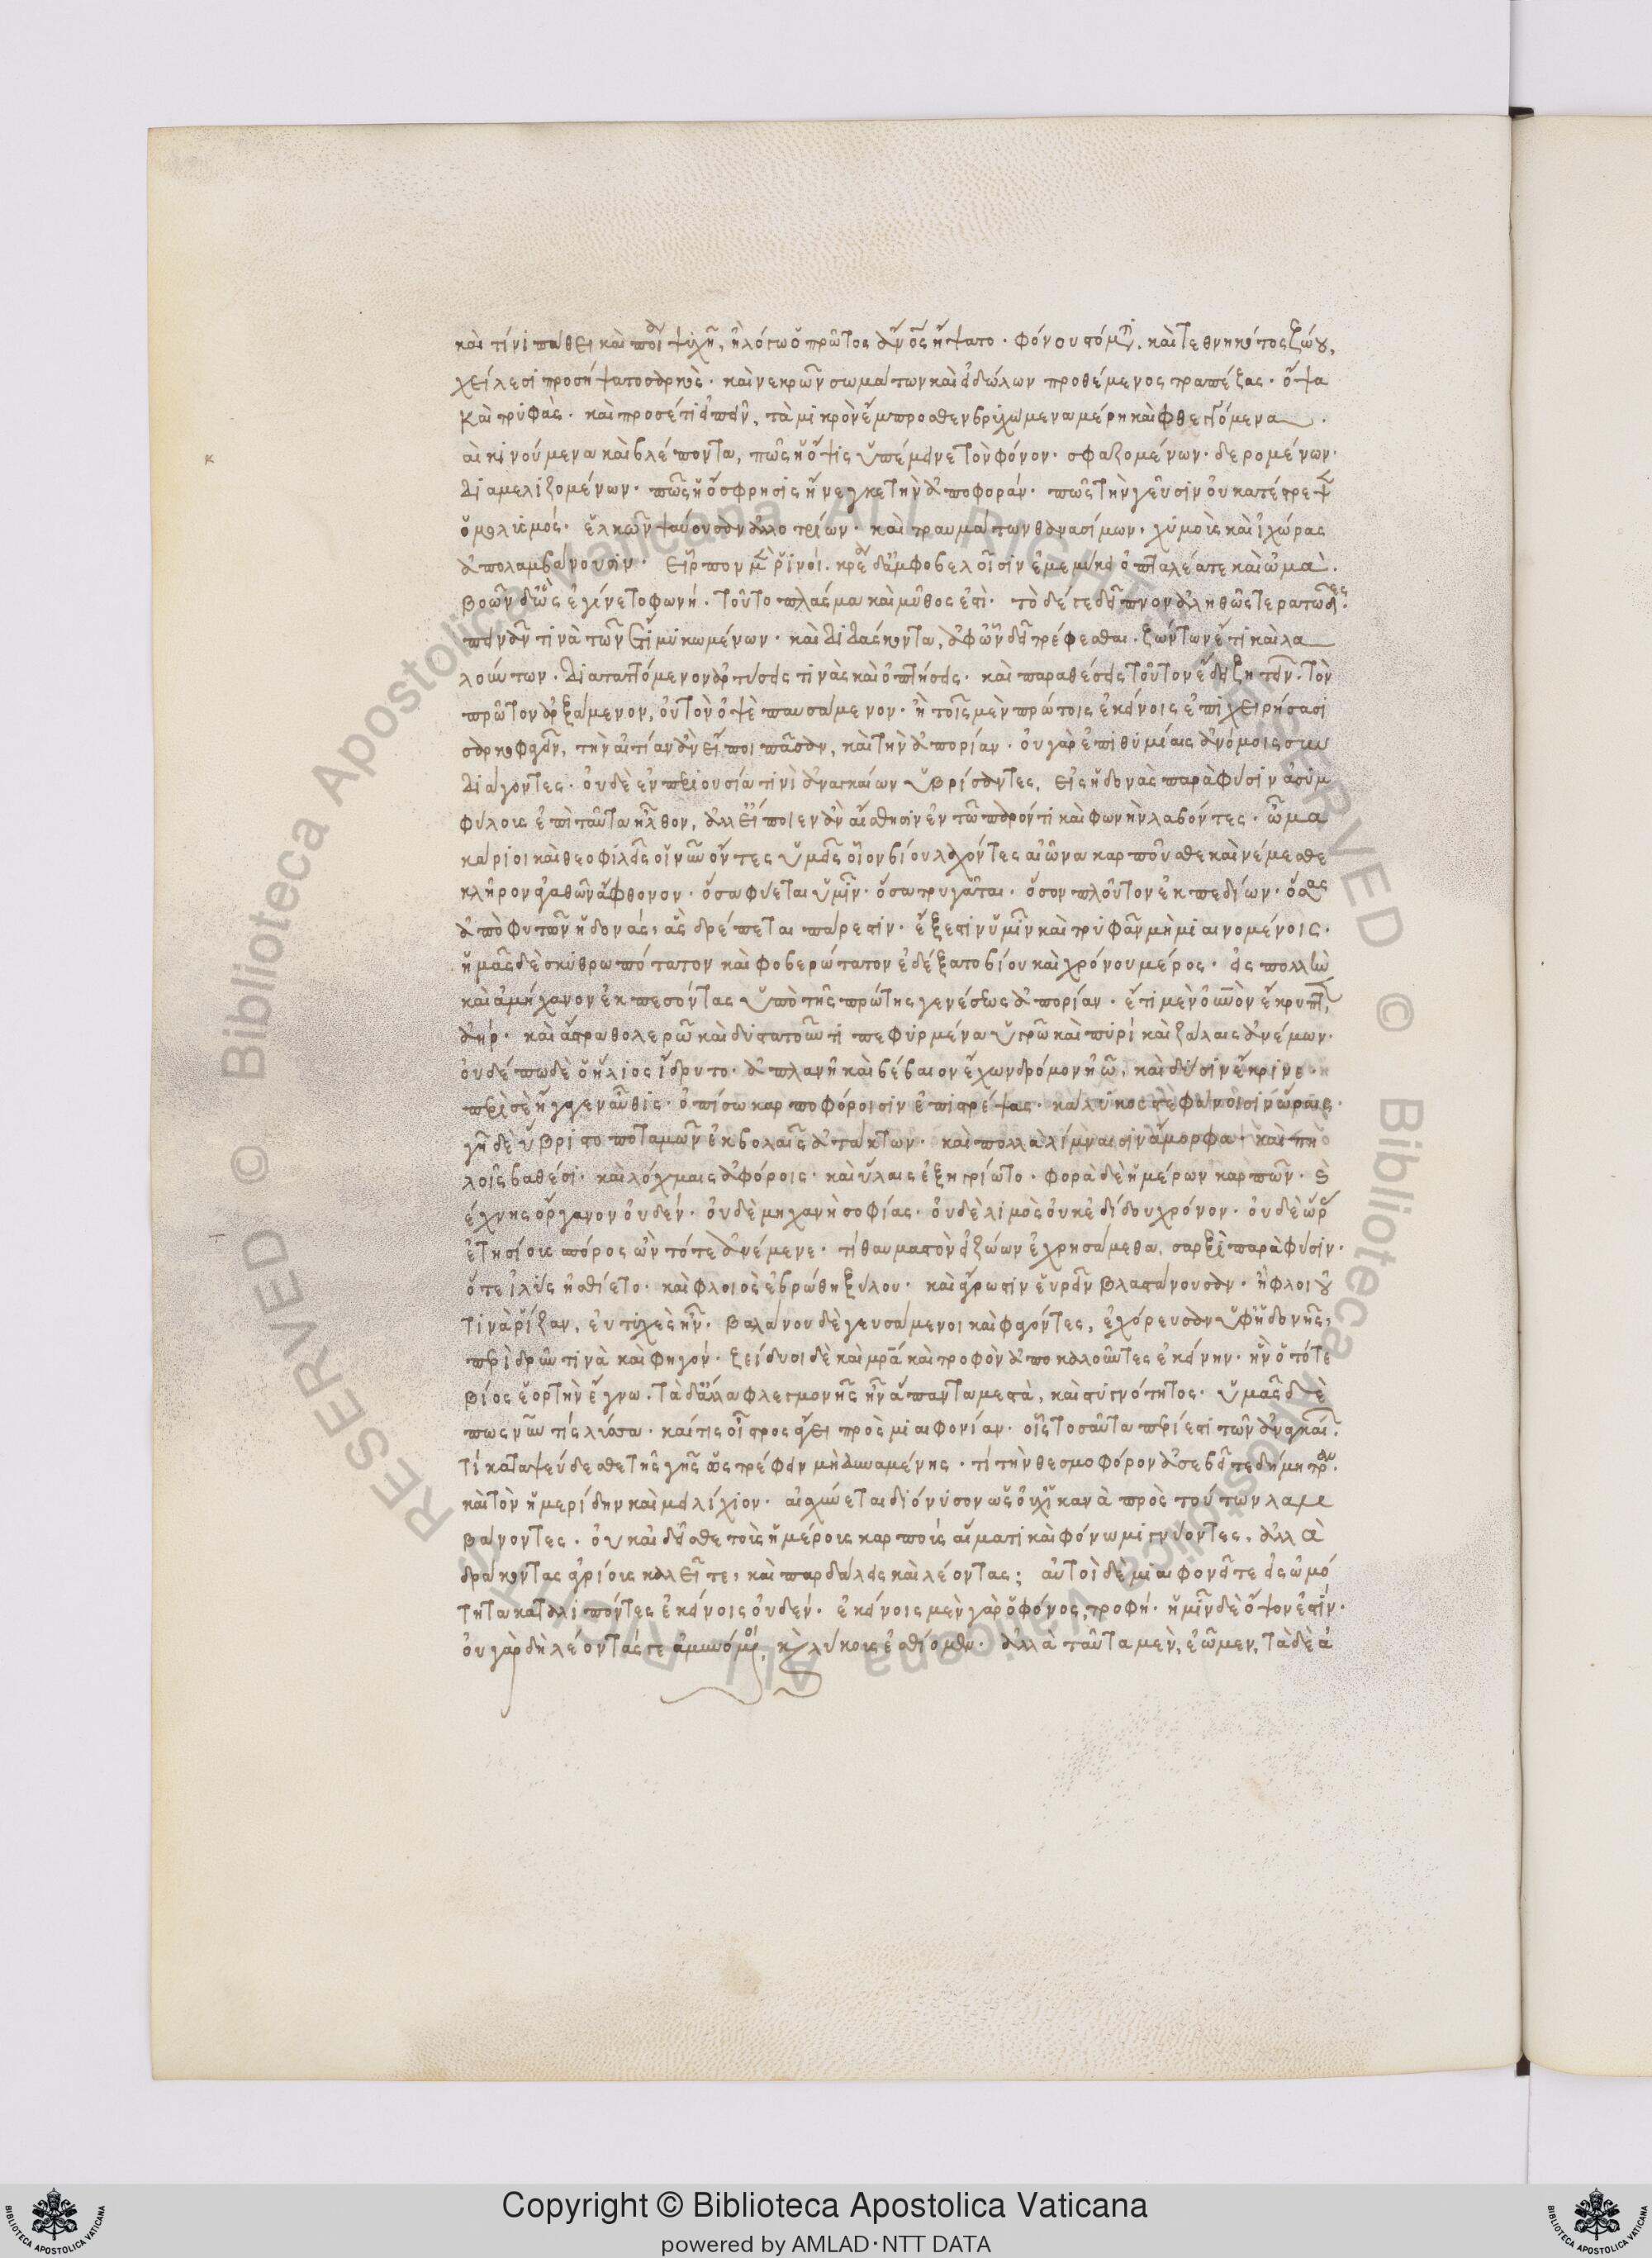 καὶ τίνι πάθει καὶ ποίᾳ ψυχῆ, ἢ λόγω ὁ πρῶτος ἄνος ἥψατο. φόνου στόματι. καὶ τεθνηκότος ζώου,
χείλεσι προσήψατο σαρκὸς. καὶ νεκρῶν σωμάτων καὶ εἰδώλων προθέμενος τραπέζας. ὄψα
καὶ τρυφὰς. καὶ προσέτι εἰπεῖν, τὰ μικρὸν ἔμπροσθεν βρυχώμενα μέρη καὶ φθεγγόμενα.
καὶ κινούμενα καὶ βλέποντα, πῶς ἡ ὄψις ὑπέμεινε τὸν φόνον. σφαζομένων. δερομένων.
διαμελιζομένων. πῶς ἡ ὄσφρησις ἤνεγκε τὴν ἀποφοράν. πῶς τὴν γεῦσιν οὐκ ἀπέστρεψ
ὁ μολυσμός. ἑλκῶν ψαύουσαν ἀλλοτρίων. καὶ τραυμάτων θανασίμων. χυμοὺς καὶ ἰχώρας
ἀπολαμβάνουσιν. εἷρπον μὲν ῥινοί. κρέα δ' ἀμφ' ὀβελοῖσιν ἐμεμύκει ὀπταλέα τε καὶ ὠμὰ.
βοῶν δ' ὣς ἐγίνετο φωνή. τοῦτο πλάσμα καὶ μῦθος ἐστὶ. τὸ δέ γε δεῖπνον ἀληθῶς τερατῶδες.
πεινᾶν τινὰ τῶν ἔτι μυκωμένων. καὶ διδάσκοντα, ἀφ' ὧν δεῖ τρέφεσθαι. ζώντων ἔτι καὶ λα
λούντων. διαταττόμενον ἀρτύσεις τινὰς καὶ ὀπτήσεις. καὶ παραθέσεις τοῦτον ἔδει ζητεῖν. τὸν
πρῶτον ἀρξάμενον, οὐ τὸν ὀψὲ παυσάμενον. ἢ τοῖς μὲν πρώτοις ἐκείνοις ἐπιχειρήσασι
σαρκοφαγεῖν, τὴν αἰτίαν ἂν εἴποι πᾶσαν, καὶ τὴν ἀπορίαν. οὐ γὰρ ἐπιθυμίαις ἀνόμοις συν
διάγοντες. οὐδὲ ἐν περιουσία τινὶ ἀναγκαίων ὑβρίσαντες, εἰς ἡδονὰς παρὰ φύσιν ἀσυμ
φύλοις ἐπὶ ταῦτα ἦλθον, ἀλλ' εἴποιεν ἂν αἴσθησιν ἐν τῶ παρόντι καὶ φωνὴν λαβόντες. ὦ μα
κάριοι καὶ θεοφιλεῖς οἱ νῦν ὄντες ὑμεῖς οἷον βίου λαχόντες αἰῶνα καρποῦσθε καὶ νέμεσθε
κλῆρον ἀγαθῶν ἄφθονον. ὅσα φύεται ὑμῖν. ὅσα τρυγᾶται. ὅσον πλοῦτον ἐκ πεδίων. ὅσας
ἀπὸ φυτῶν ἡδονάς, ἃς δρέπεται πάρεστιν. ἔξεστιν ὑμῖν καὶ τρυφᾶν μὴ μιαινομένοις.
ἡμᾶς δὲ σκυθρωπότατον καὶ φοβερώτατον ἐδέξατο βίου καὶ χρόνου μέρος. εἰς πολλὴν
καὶ ἀμήχανον ἐκπεσόντας ὑπὸ τῆς πρώτης γενέσεως ἀπορίαν. ἔτι μὲν οὐνὸν ἔκρυπτ,
ἀήρ. καὶ ἄστρα θολερῶ καὶ δυστατοῦντι πεφυρμένα ὑγρῶ καὶ πυρὶ καὶ ζάλαις ἀνέμων.
οὐδέπω δὲ ὁ ἥλιος ἵδρυτο. ἀπλανῆ καὶ βέβαιον ἔχων δρόμον ἠῶ, καὶ δύσιν ἔκρινε.
περὶ δὲ ἤγαγεν αὖθις. ὀπίσω καρποφόροισιν ἐπιστρέψας. καλυκοστεφάνοισιν ὥραις.
γῆ δὲ ὕβριστο ποταμῶν ἐκβολαῖς ἀτάκτων. καὶ πολλὰ λίμναισιν ἄμορφα. καὶ πη
λοῖς βαθέσι. καὶ λόχμαις ἀφόροις. καὶ ὕλαις ἐξηγρίωτο. φορὰ δὲ ἡμέρων καρπῶν. ὃ
έχνης ὄργανον οὐδέν. οὐδὲ μηχανὴ σοφίας. οὐδὲ λιμὸς οὐκ ἐδίδου χρόνον. οὐδὲ ὥρ
ἐτησίους σπόρος ὢν τότε ἀνέμενε. τί θαυμαστὸν εἰ ζώων ἐχρησάμεθα. σαρξὶ παρὰ φύσιν.
ὅτε ἰλὺς ἠσθίετο. καὶ φλοιὸς ἐβρώθη ξύλου. καὶ ἄγρωστιν εὑρεῖν βλαστάνουσαν. ἢ φλοιοῦ
τινὰ ῥίζαν, εὐτυχὲς ἦν. βαλάνου δὲ γευσάμενοι καὶ φαγόντες, ἐχόρευσαν ὑφ' ἡδονῆς,
περὶ δρῦν τινὰ καὶ φηγόν. ζείδυσι δὲ καὶ μρα καὶ τροφὸν ἀποκαλοῦντες ἐκείνην. ἣν ὁ τότε
βίος ἑορτὴν ἔγνω. τὰ δ' ἄλλα φλεγμονῆς ἦν ἅπαντα μεστὰ, καὶ στυγνότητος. ὑμᾶς δὲ
πως νῦν τίς λύσσα. καί τις οἶστρος ἄγει πρὸς μιαιφονίαν. οἷς τοσαῦτα περίεστι τῶν ἀναγκαί.
τί καταψεύδεσθε τῆς γῆς ὡς τρέφειν μὴ δυναμένης. τί τὴν θεσμοφόρον ἀσεβεῖτε δήμητραν.
καὶ τὸν ἡμερίδην καὶ μειλίχιον. αἰσχύνεται διόνυσον ὡς οὐχ ἱκανὰ πρὸς τούτων λαμ
βάνοντες. οὐκ αἰδεῖσθε τοὺς ἡμέρους καρποὺς αἵματι καὶ φόνω μιγνύοντες, ἀλλὰ
δράκοντας ἀγρίους καλεῖτε, καὶ παρδάλεις καὶ λέοντας; αὐτοὶ δὲ μιαιφονεῖτε εἰς ὠμό
τητα καταλιπόντες ἐκείνοις οὐδέν. ἐκείνοις μὲν γὰρ ὁ φόνος, τροφή. ἡμῖν δὲ ὄψον ἐστίν.
οὐ γὰρ δὴ λέοντάς τε ἀμυνόμενοι, καὶ λύκους ἐσθίομεν. ἀλλὰ ταῦτα μὲν, ἐῶμεν, τὰ δὲ ἀ
Copyright © Biblioteca Apostolica Vaticana
powered by AMLAD·NTT DATA